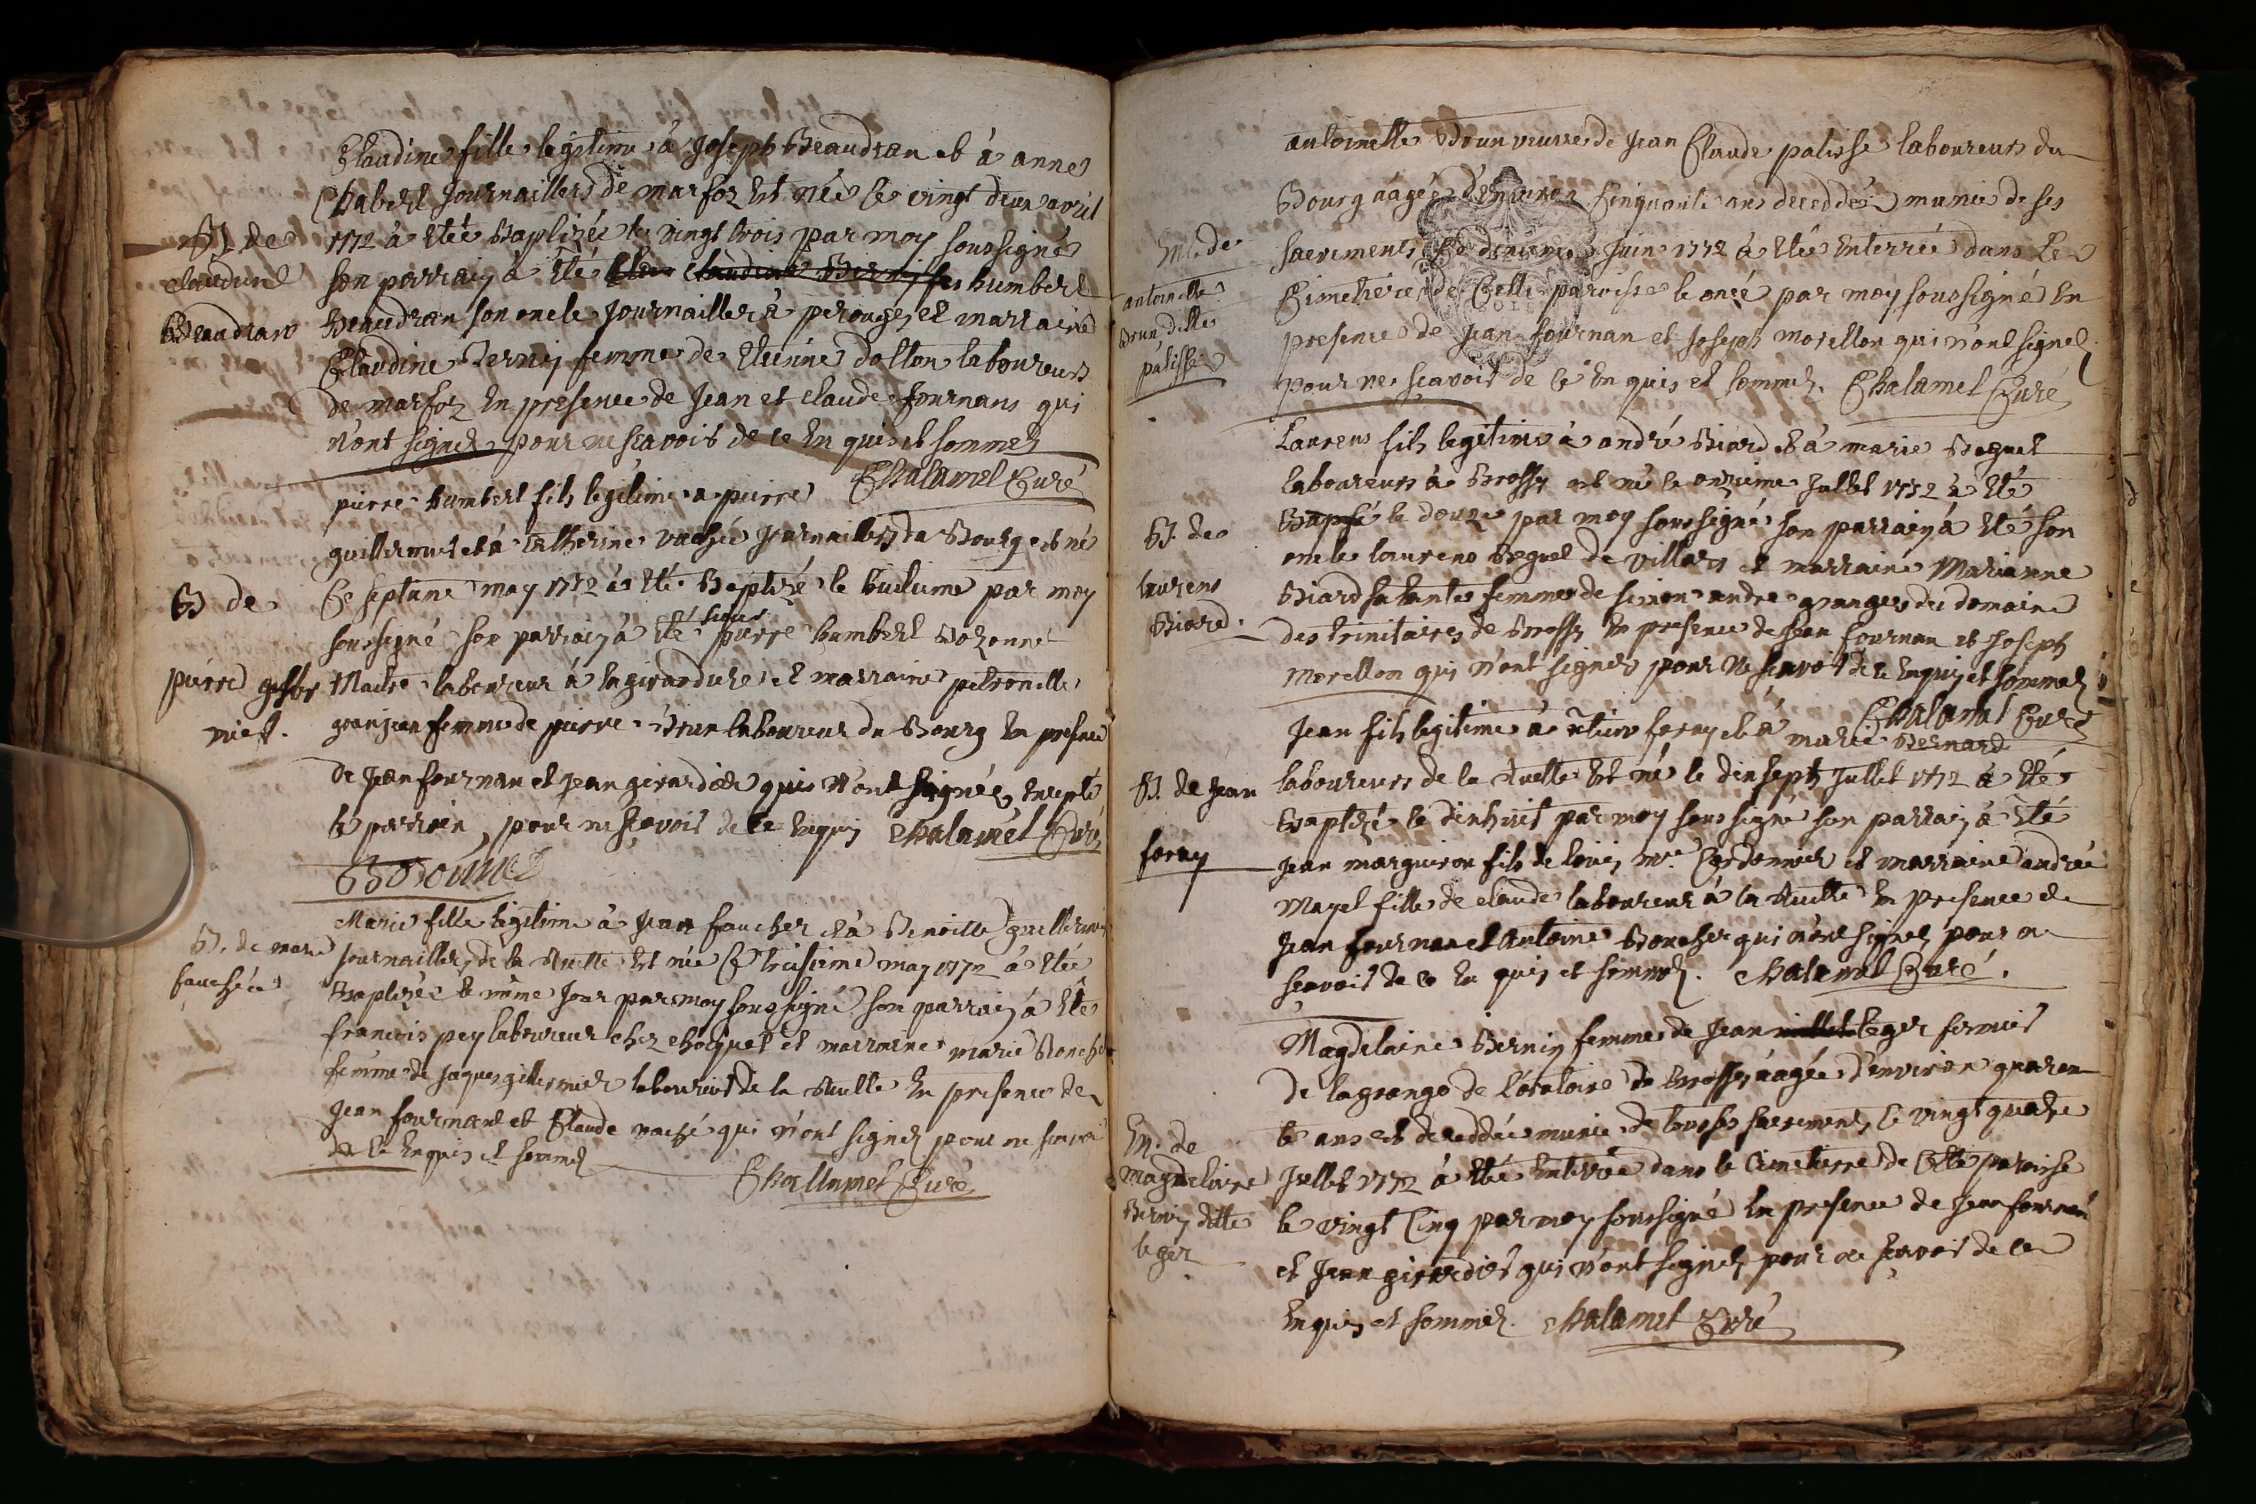 Claudine fille legitime à Joseph Beaudran et à anne
Chabert Journailler de marfoz Est née le vingt deux avril
B. de
claudine
Beaudran
1772 à Eté Baptizée le vingt trois par moy soussigné
son parrain à Eté humbert
Beaudran son oncle Journaillier à perouges et marraine
Claudine Bernin femme de Etienne dolton laboureurs
de marfoz En presence de Jean et claude fournans qui
n'ont signez pour ne scavoir de ce Enquis et sommez
Chalamel Curé
pierre humbert fils legitime a pierre
guillermet et à Catherine vachée Journaillers du Bourg est né
B de
pierre
miet.
Le septieme may 1772 à Eté Baptizé le huitieme par moy
soussigné son parrain à Eté sieur pierre humbert Bozonnet
Maitre laboureur à la girardiere et marraine petronelle
granjean femme de pierre Brun laboureur du Bourg En presence
de Jean fournan et Jean girardier qui n'ont signés Excepté
le parrain pour ne scavoir de ce Enquis Chalamel Curé
Bozonnet
B. de marie
fauchée
Marie fille legitime à Jean faucher et à Benoitte guillermet
Journaillers de la Ruette Est née Le treisieme may 1772 à Eté
Baptizée le même Jour par moy soussigné son parrain à Eté
francois pey laboureur chez choquet et marraine marie Boncher
femme de Jaques gillermier laboureur de la Ruette En presence de
Jean fournant et Claude vaché qui n'ont signez pour ne scavoir
de ce Enquis et sommez
Challamel Curé
antoinette Brun veuve de Jean Claude palisse laboureurs du
Bourg aagée d'Environ Cinquante ans deceddée munie de ses
M. de
antoinette
Brun ditte
palisse
sacrements Le dixieme Juin 1772 à Eté Enterrée dans Le
Cimetiere de Cette paroisse le onze par moy soussigné En
presence de Jean fournan et Joseph morellon qui n'ont signez
pour ne scavoir de ce Enquis et sommez. Chalamel Curé
Laurens fils legitime à andré Biard et à marie Beguet
laboureurs à Brosses est né le onzieme Juillet 1772 à Eté
B. de
laurens
Biard.
Baptisé le douze par moy soussigné son parrain à Eté son
oncle laurens Beguet de villars et marraine Marianne
Biard sa tante femme de simon andre granger du domaine
des trinitaires de Brosses En presence de Jean fournan et Joseph
Morellon qui n'ont signez pour ne scavoir de ce Enquis et sommez
Chalamel Curé
Jean fils legitime à feray et à marie Bernard
B. de Jean
feray
laboureurs de la Ruette Est né le dixsept Juillet 1772 à Eté
Baptizé le dixhuit par moy soussigné son parrain à Eté
Jean marguiron fils de louis mre Cordonnier et marraine andrée
Mazel fille de claude laboureur à la Ruette En presence de
Jean fournan et Antoine Boncher qui n'ont signez pour ne
scavoir de ce Enquis et sommez. Chalamel Curé.
Magdelaine Bernin femme de Jean leger fermier
de la grange de l'oratoire de Brosses aagée d'environ quaren
te ans est deceddée munie de tous ses sacrements le vingt quatre
M. de
magdelaine
Bernin ditte
leger
Juillet 1772 à Eté Enterrée dans le Cimetierre de Cette paroisse
le vingt Cinq par moy soussigné En presence de Jean fournan
et Jean girardier qui n'ont signez pour ne scavoir de ce
Enquis et sommez. Chalamel Curé